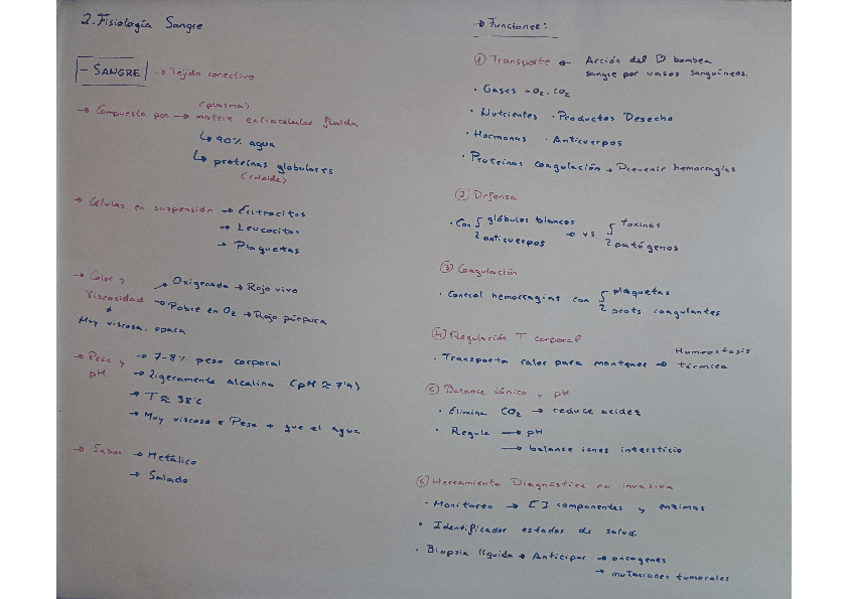 2. Fisiología Sangre
- SANGRE → Tejido conectivo
(plasma)
→ Compuesto por → matriz extracelular fluida
↳ 90% agua
↳ proteínas globulares
(coloide)
→ Células en suspensión → Eritrocitos
→ Leucocitos
→ Plaquetas
→ Color y viscosidad
→ Oxigenada → Rojo vivo
→ Pobre en O2 → Rojo púrpura
Muy viscosa, opaca
→ Peso y pH
→ 7-8% peso corporal
→ Ligeramente alcalina (pH ≈ 7'4)
→ T ≈ 38°C
→ Muy viscosa → Pesa + que el agua
→ Sabor → Metálico
→ Salado
→ Funciones:
① Transporte ← Acción del ♡ bombea
sangre por vasos sanguíneos.
· Gases → O2, CO2
· Nutrientes · Productos Desecho
· Hormonas · Anticuerpos
· Proteínas coagulación → Prevenir hemorragias
② Defensa
· Con { glóbulos blancos
anticuerpos → vs { toxinas
patógenos
③ Coagulación
· Control hemorragias con { plaquetas
prots coagulantes
④ Regulación T corporal
· Transporta calor para mantener → Homeostasis
térmica
⑤ Balance iónico y pH
· Elimina CO2 → reduce acidez
· Regula → pH
→ balance iones intersticio
⑥ Herramienta Diagnóstica no invasiva
· Monitoreo → [ ] componentes y enzimas
· Identificador estados de salud.
· Biopsia líquida → Anticipar → oncogenes
→ mutaciones tumorales